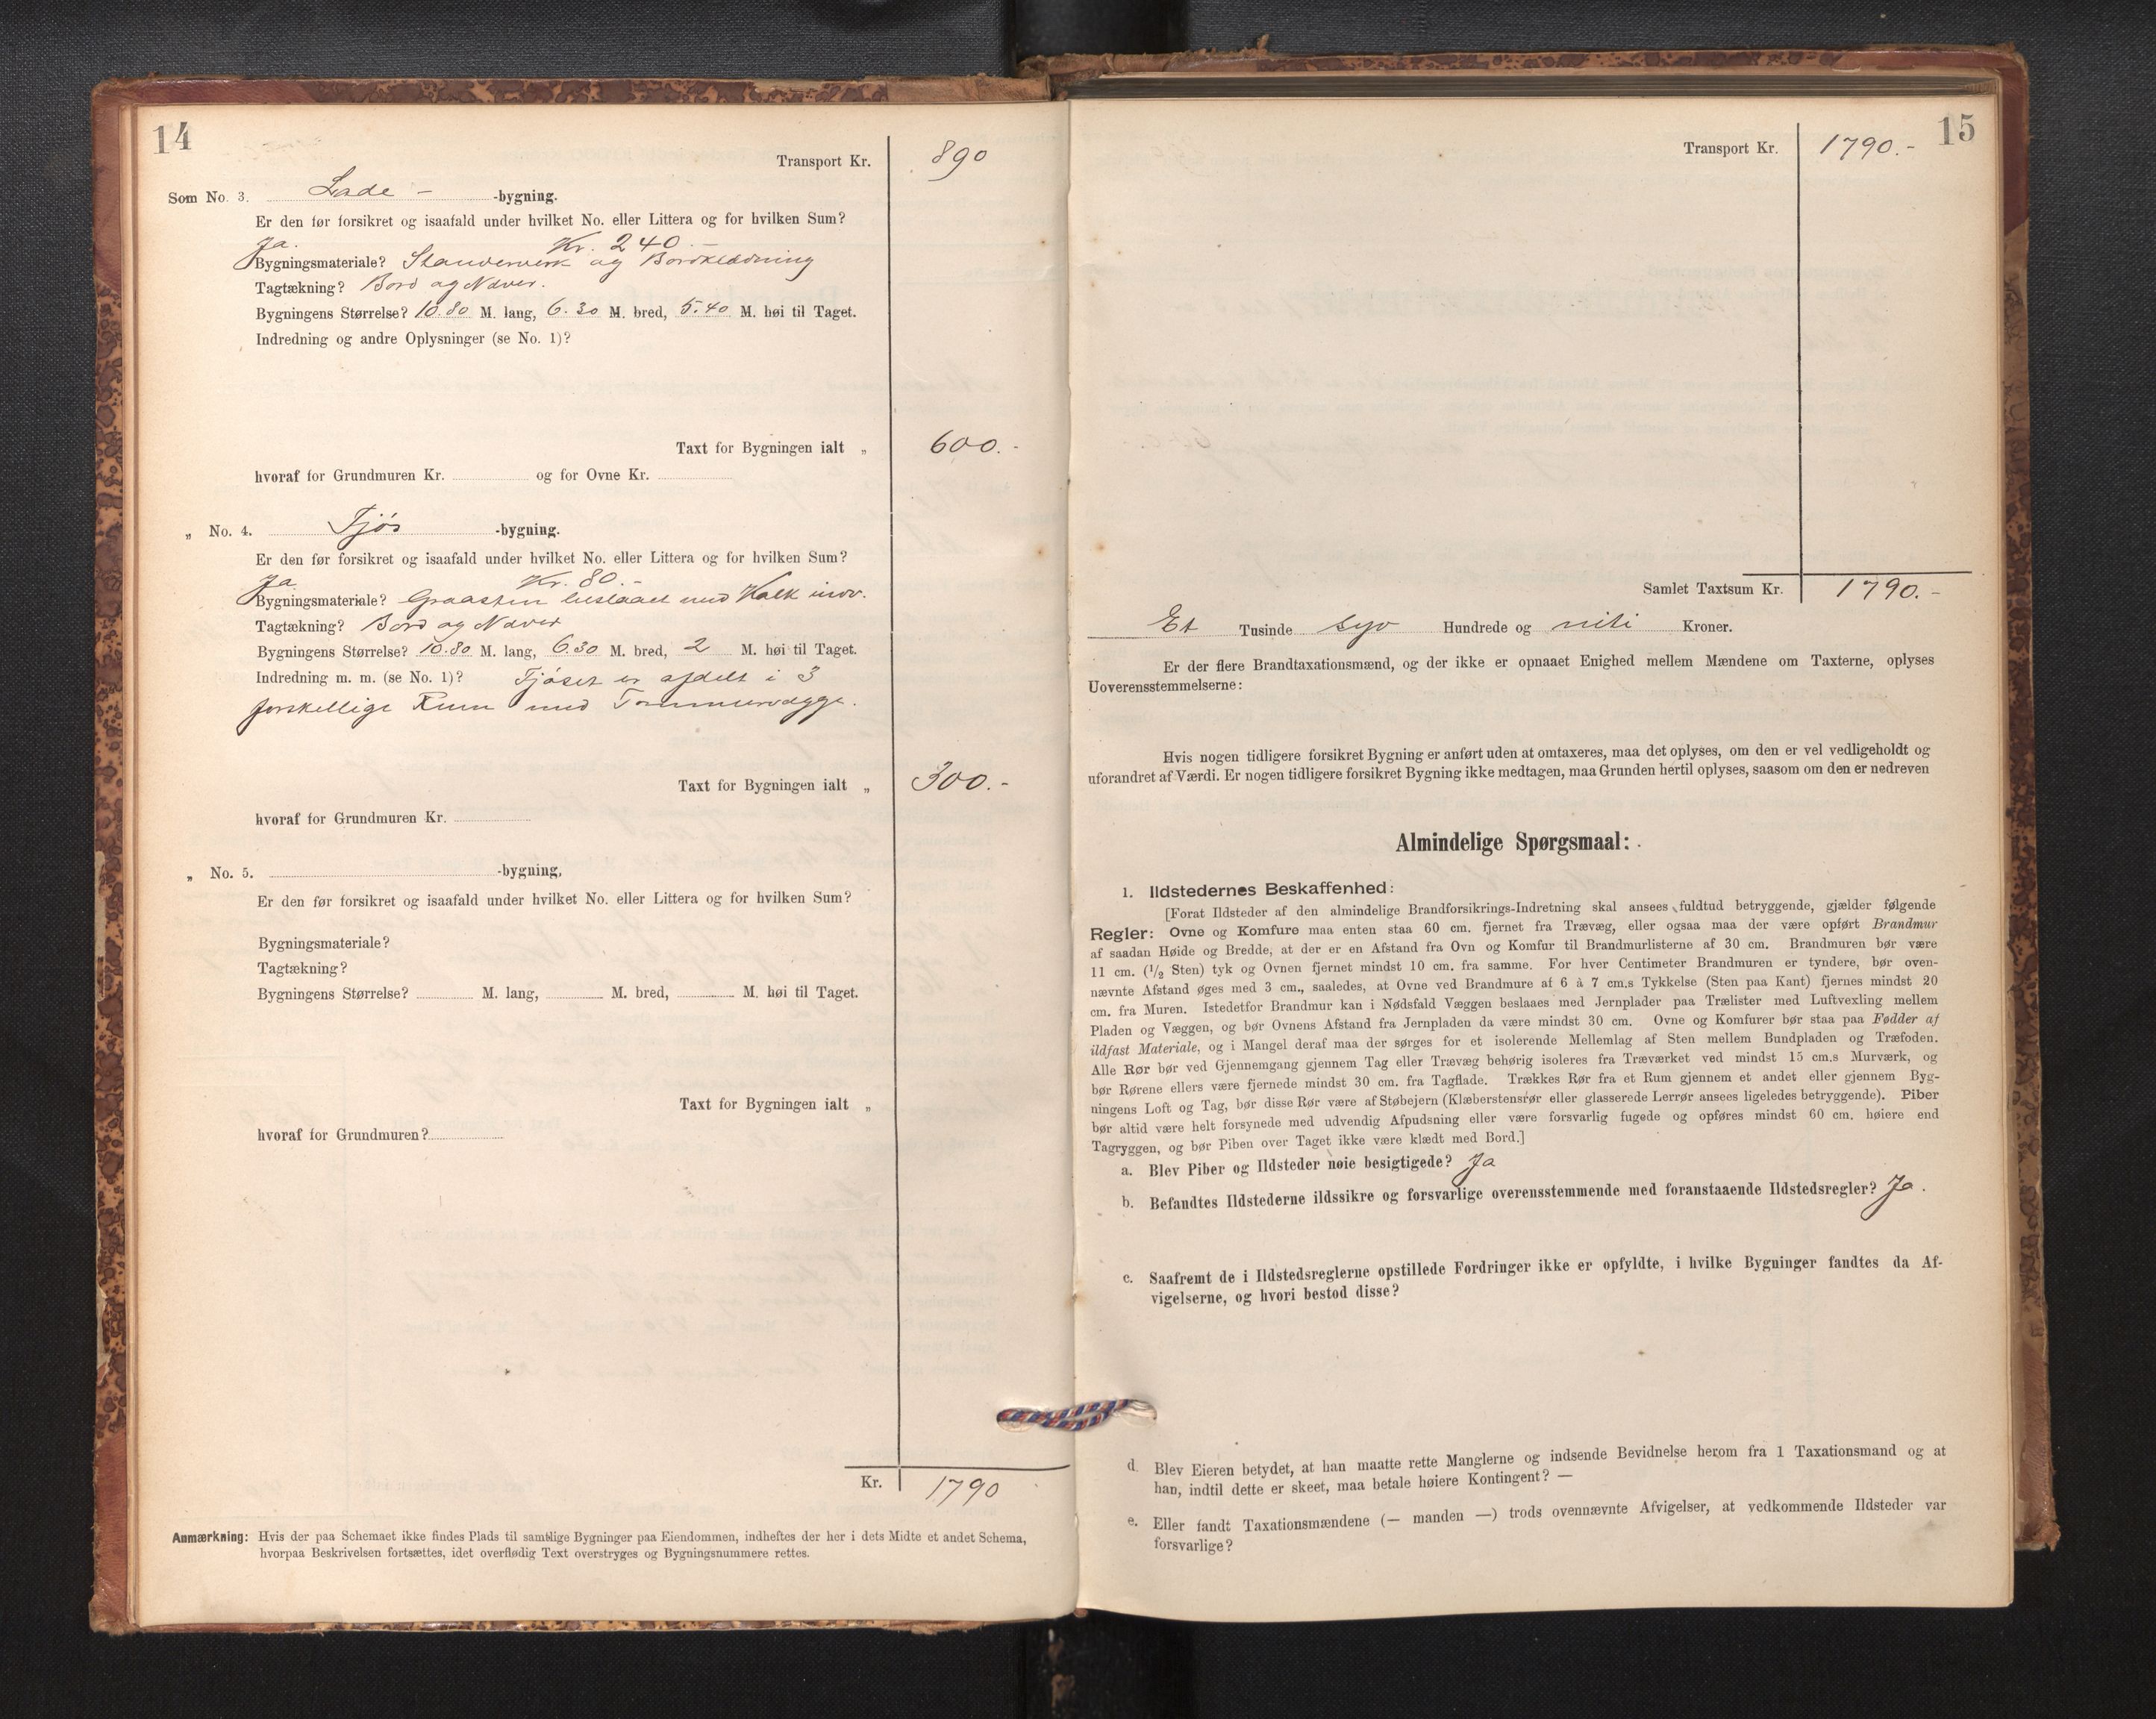 14
Transport Kr. 890
Som No. 3. Lade - -bygning.
Er den før forsikret og isaafald under hvilket No. eller Littera og for hvilken Sum?
Ja. Kr. 240.-
Bygningsmateriale? Standerverk og Bordklædning
Tagtækning? Bord og Næver.
Bygningens Størrelse? 10.80 M. lang, 6.30 M. bred, 5.40 M. høi til Taget.
Indredning og andre Oplysninger (se No. 1)?
Taxt for Bygningen ialt „ 600.-
hvoraf for Grundmuren Kr. og for Ovne Kr.
„ No. 4. Fjøs -bygning.
Er den før forsikret og isaafald under hvilket No. eller Littera og for hvilken Sum?
Ja Kr. 80.-
Bygningsmateriale? Graasten beslaaet med Kalk indv.
Tagtækning? Bord og Næver
Bygningens Størrelse? 10.80 M. lang, 6.30 M. bred, 2 M. høi til Taget.
Indredning m. m. (se No. 1)? Fjøset er afdelt i 3
forskellige Rum med Tømmervægge.
Taxt for Bygningen ialt „ 300.-
hvoraf for Grundmuren Kr.
„ No. 5. -bygning,
Er den før forsikret og isaafald under hvilket No. eller Littera og for hvilken Sum?
Bygningsmateriale?
Tagtækning?
Bygningens Størrelse? M. lang, M. bred, M. høi til Taget.
Taxt for Bygningen ialt „
hvoraf for Grundmuren?
Kr. 1790
Anmærkning: Hvis der paa Schemaet ikke findes Plads til samtlige Bygninger paa Eiendommen, indheftes der her i dets Midte et andet Schema,
hvorpaa Beskrivelsen fortsættes, idet overflødig Text overstryges og Bygningsnummere rettes.
15
Transport Kr. 1790.-
Samlet Taxtsum Kr. 1790.-
Et Tusinde syv Hundrede og niti Kroner.
Er der flere Brandtaxationsmænd, og der ikke er opnaaet Enighed mellem Mændene om Taxterne, oplyses
Uoverensstemmelserne:
Hvis nogen tidligere forsikret Bygning er anført uden at omtaxeres, maa det oplyses, om den er vel vedligeholdt og
uforandret af Værdi. Er nogen tidligere forsikret Bygning ikke medtagen, maa Grunden hertil oplyses, saasom om den er nedreven
Almindelige Spørgsmaal:
1. Ildstedernes Beskaffenhed:
[Forat Ildsteder af den almindelige Brandforsikrings-Indretning skal ansees fuldtud betryggende, gjælder følgende
Regler: Ovne og Komfure maa enten staa 60 cm. fjernet fra Trævæg, eller ogsaa maa der være opført Brandmur
af saadan Høide og Bredde, at der er en Afstand fra Ovn og Komfur til Brandmurlisterne af 30 cm. Brandmuren bør være
11 cm. (1/2 Sten) tyk og Ovnen fjernet mindst 10 cm. fra samme. For hver Centimeter Brandmuren er tyndere, bør oven-
nævnte Afstand øges med 3 cm., saaledes, at Ovne ved Brandmure af 6 à 7 cm.s Tykkelse (Sten paa Kant) fjernes mindst 20
cm. fra Muren. Istedetfor Brandmur kan i Nødsfald Væggen beslaaes med Jernplader paa Trælister med Luftvexling mellem
Pladen og Væggen, og bør Ovnens Afstand fra Jernpladen da være mindst 30 cm. Ovne og Komfurer bør staa paa Fødder af
ildfast Materiale, og i Mangel deraf maa der sørges for et isolerende Mellemlag af Sten mellem Bundpladen og Træfoden.
Alle Rør bør ved Gjennemgang gjennem Tag eller Trævæg behørig isoleres fra Træværket ved mindst 15 cm.s Murværk, og
bør Rørene ellers være fjernede mindst 30 cm. fra Tagflade. Trækkes Rør fra et Rum gjennem et andet eller gjennem Byg-
ningens Loft og Tag, bør disse Rør være af Støbejern (Klæberstensrør eller glasserede Lerrør ansees ligeledes betryggende). Piber
bør altid være helt forsynede med udvendig Afpudsning eller være forsvarlig fugede og opføres mindst 60 cm. høiere end
Tagryggen, og bør Piben over Taget ikke være klædt med Bord.]
a. Blev Piber og Ildsteder nøie besigtigede? Ja
b. Befandtes Ildstederne ildssikre og forsvarlige overensstemmende med foranstaaende Ildstedsregler? Ja.
c. Saafremt de i Ildstedsreglerne opstillede Fordringer ikke er opfyldte, i hvilke Bygninger fandtes da Af-
vigelserne, og hvori bestod disse?
d. Blev Eieren betydet, at han maatte rette Manglerne og indsende Bevidnelse herom fra 1 Taxationsmand og at
han, indtil dette er skeet, maa betale høiere Kontingent? —
e. Eller fandt Taxationsmændene (— manden —) trods ovennævnte Afvigelser, at vedkommende Ildsteder var
forsvarlige?